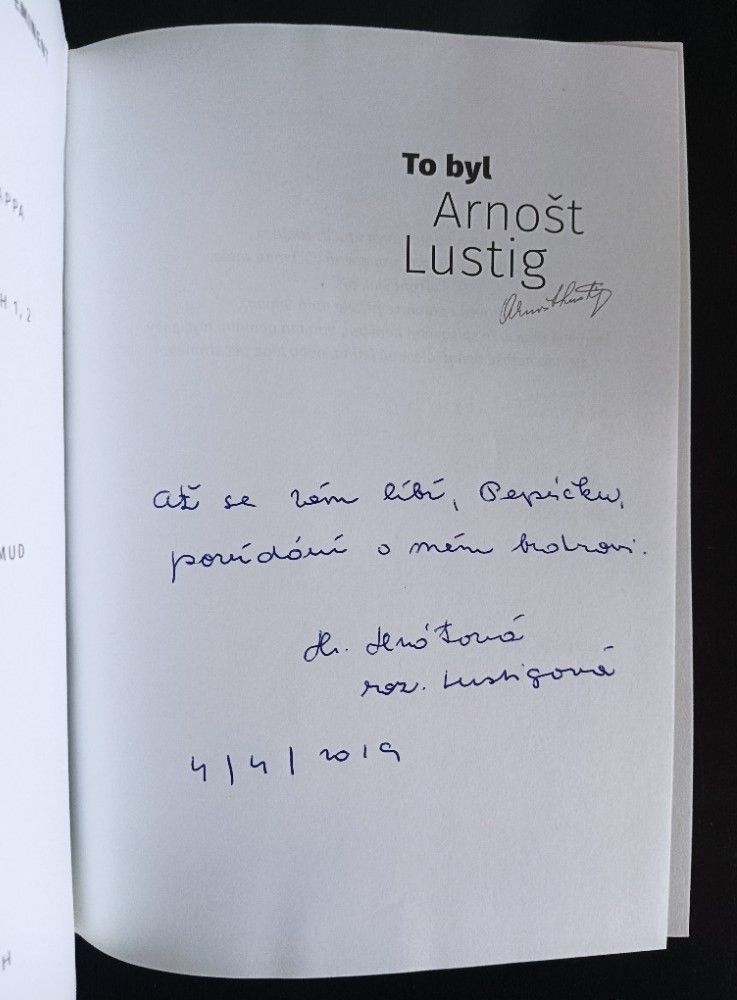 EMINENT
APPA
H 1, 2
MUD
H
To byl
Arnošt
Lustig
Arnošt Lustig
ať se vám líbí, Pepíčku,
povídání o mém bratrovi.
H. Hnátová
roz. Lustigová
4/4/2019